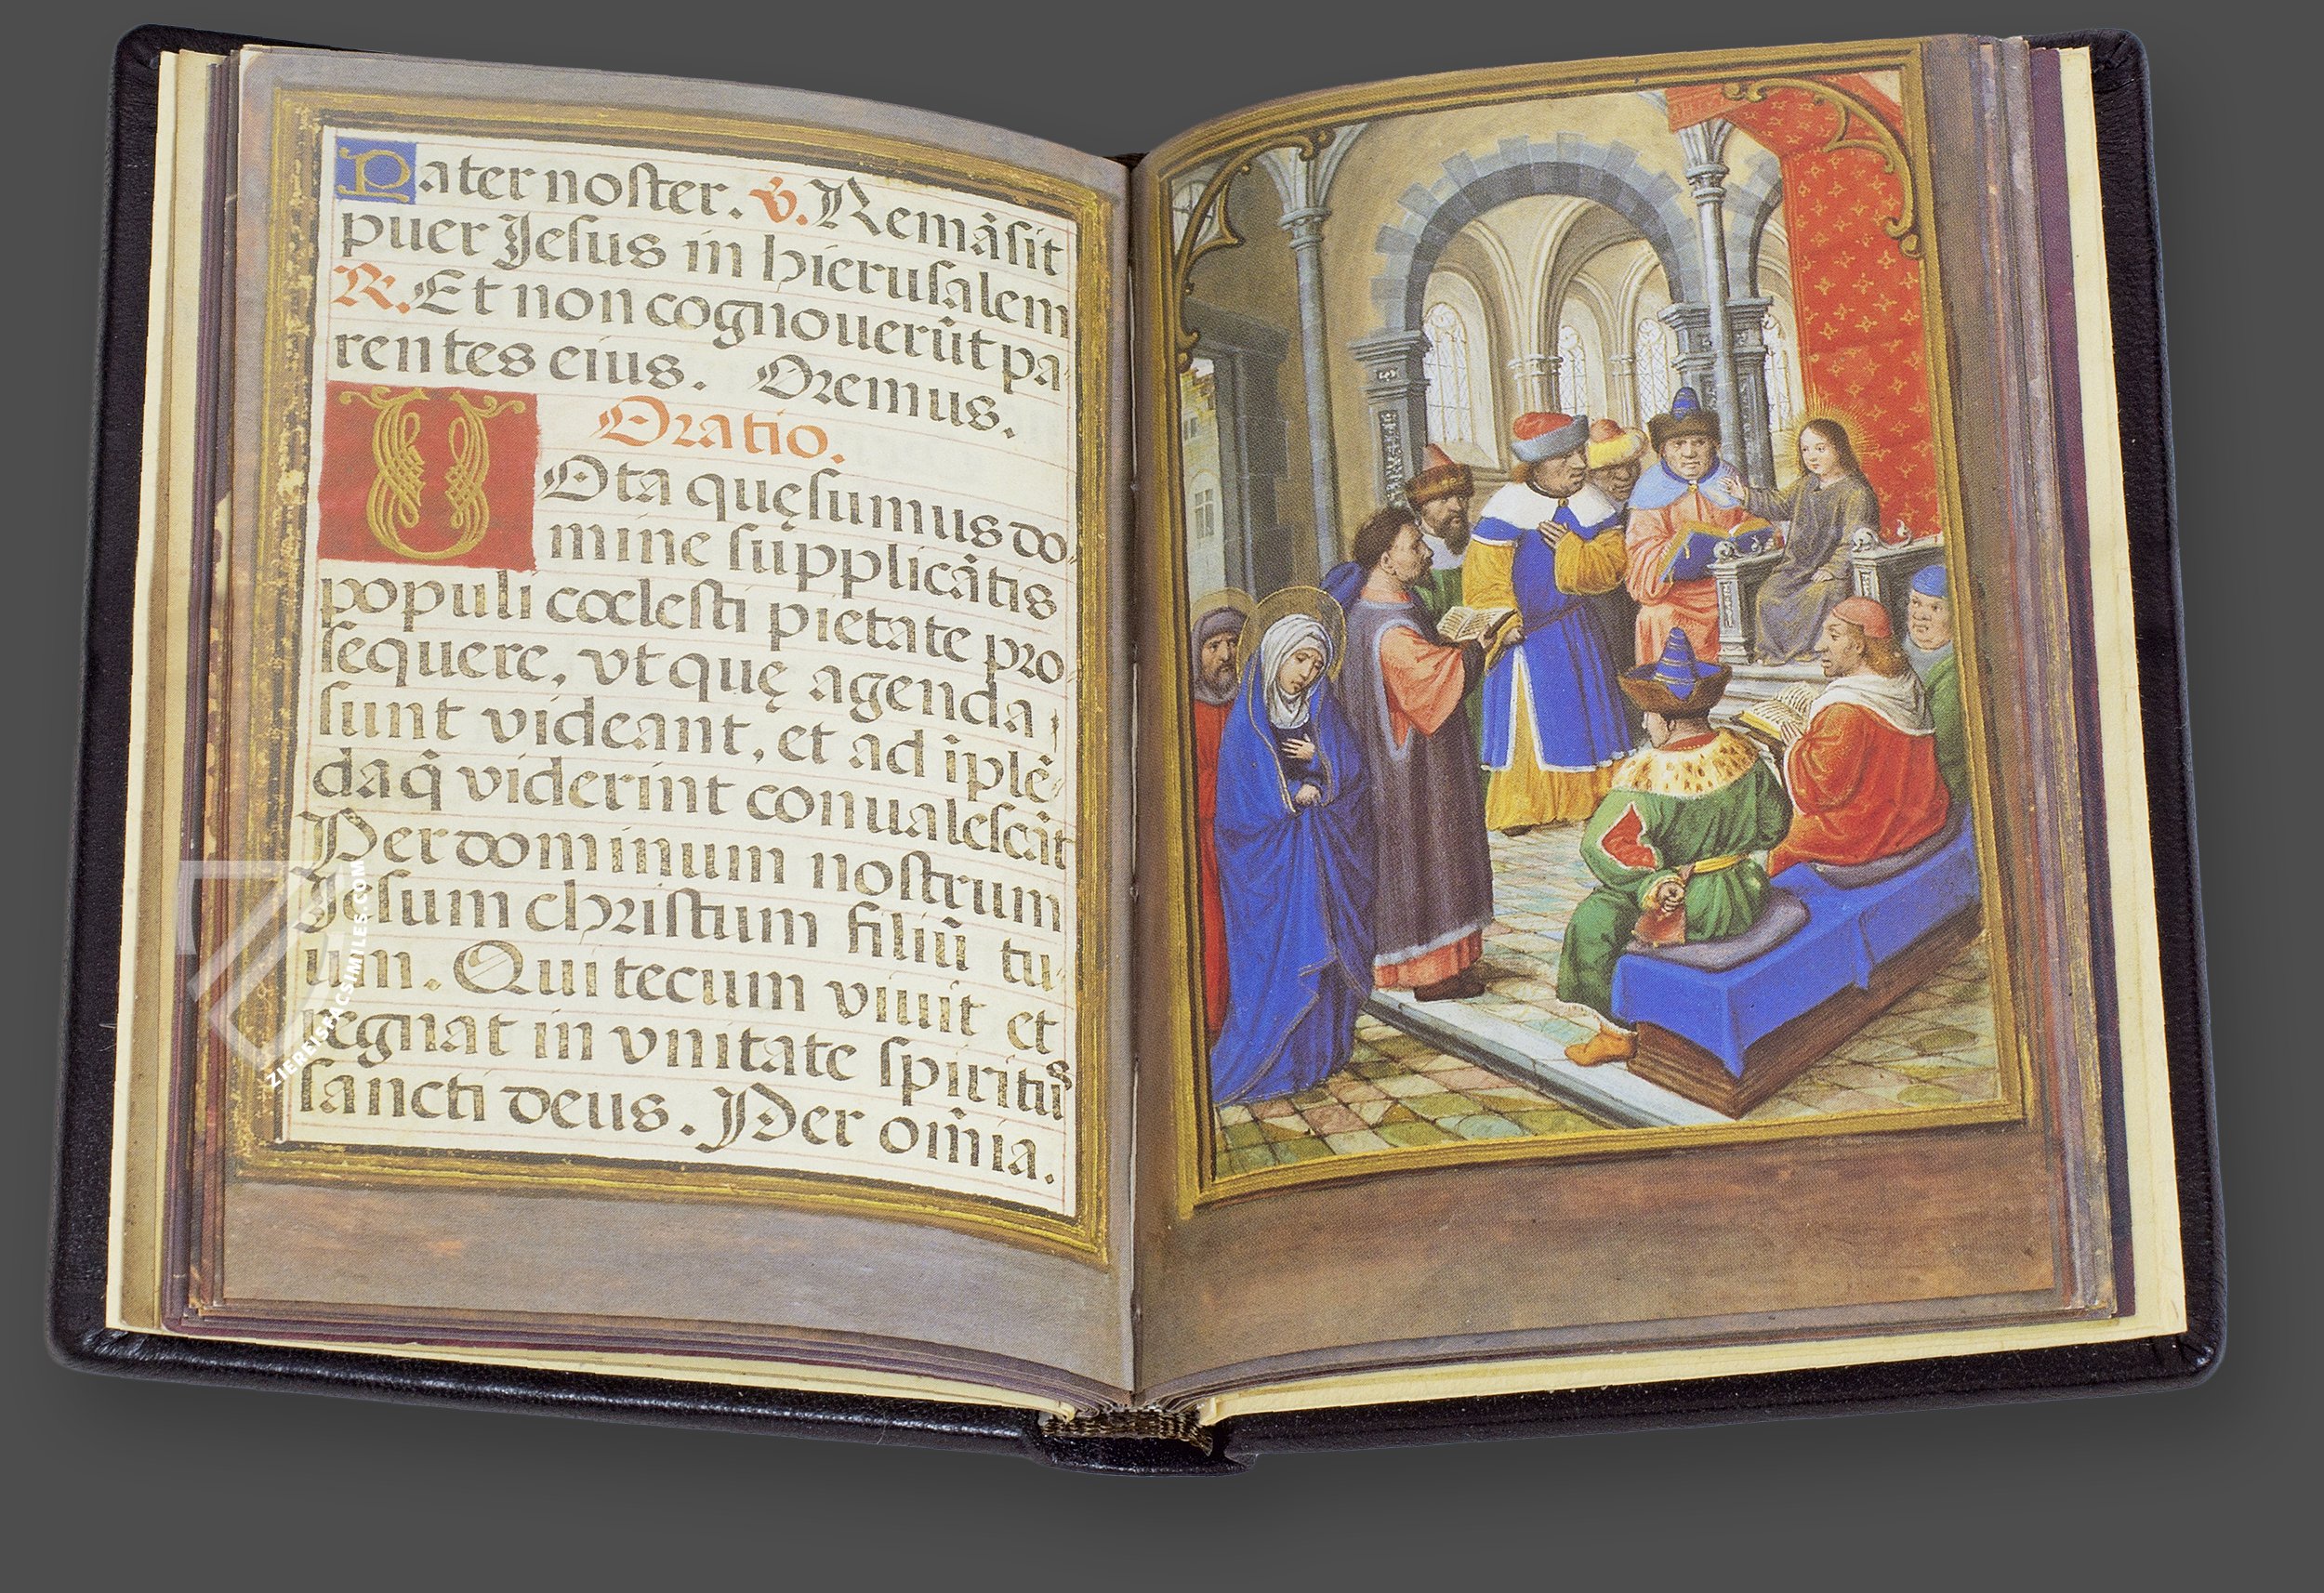 Pater noster. V. Remãsit
puer Jesus in hierusalem
R. Et non cognouerũt pa-
rentes eius. Oremus.
Oratio.
VOta quęsumus do-
mine supplicãtis
populi cœlesti pietate pro-
sequere, vt quę agenda
sunt videant, et ad ĩplẽ-
da q̃ viderint conualescãt
Per dominum nostrum
Jesum christum filiũ tu-
um. Qui tecum viuit et
regnat in vnitate spiritus
sancti deus. Per om̃ia.
ZIEREIS FACSIMILES.COM